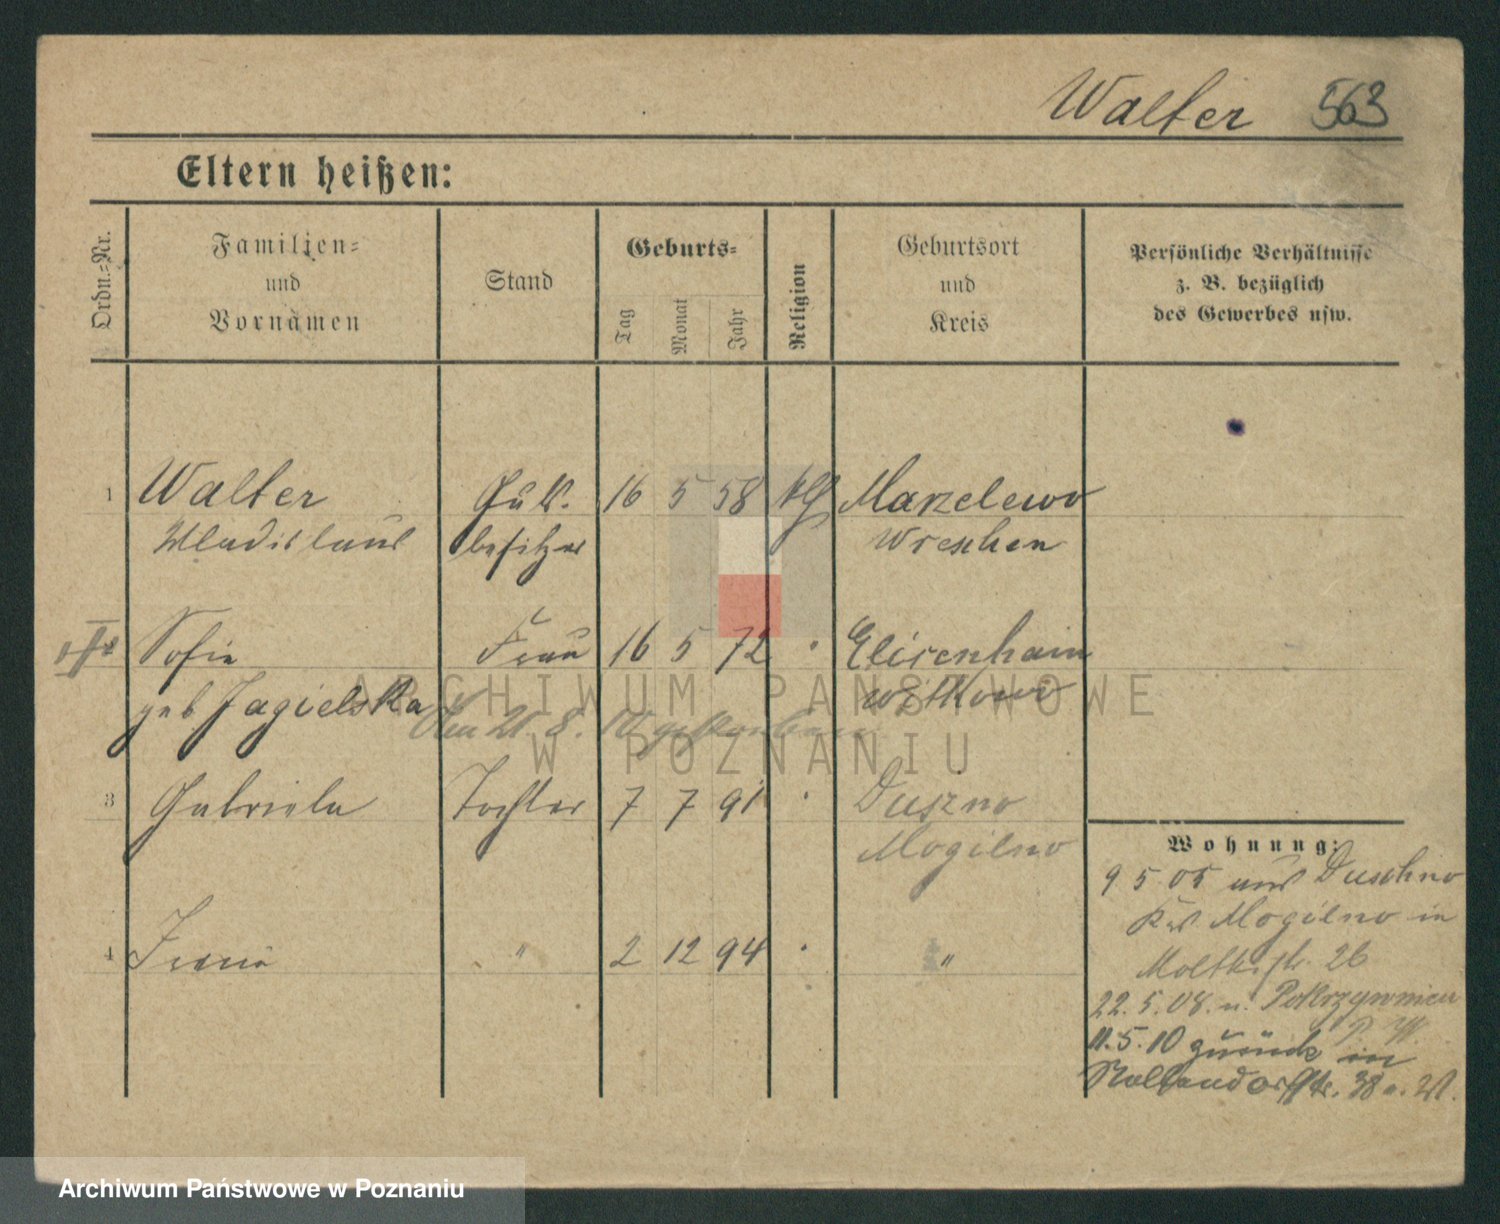 Walter 563
Eltern heißen:
Ordn.=Nr.
Familien= und Vornamen
Stand
Geburts=
Tag
Monat
Jahr
Religion
Geburtsort und Kreis
Persönliche Verhältnisse
z. B. bezüglich
des Gewerbes usw.
1 Walter Guts. 16 5 58 kth Marzelewo
Wladislaus besitzer Wreschen
Sofie Frau 16 5 72 " Elisenhain
geb Jagielska Witkowo
21. 8. 10 gestorben
3 Gabriela Tochter 7 7 91 " Duszno
Mogilno
4 Irene " 2 12 94 " "
Wohnung:
9 5 05 aus Duschno
Krs Mogilno in
Moltkestr. 26
22. 5. 08. n. Pokrzywnica
11. 5. 10 zurück in
Nollendorfstr. 38
ARCHIWUM PAŃSTWOWE
W POZNANIU
Archiwum Państwowe w Poznaniu